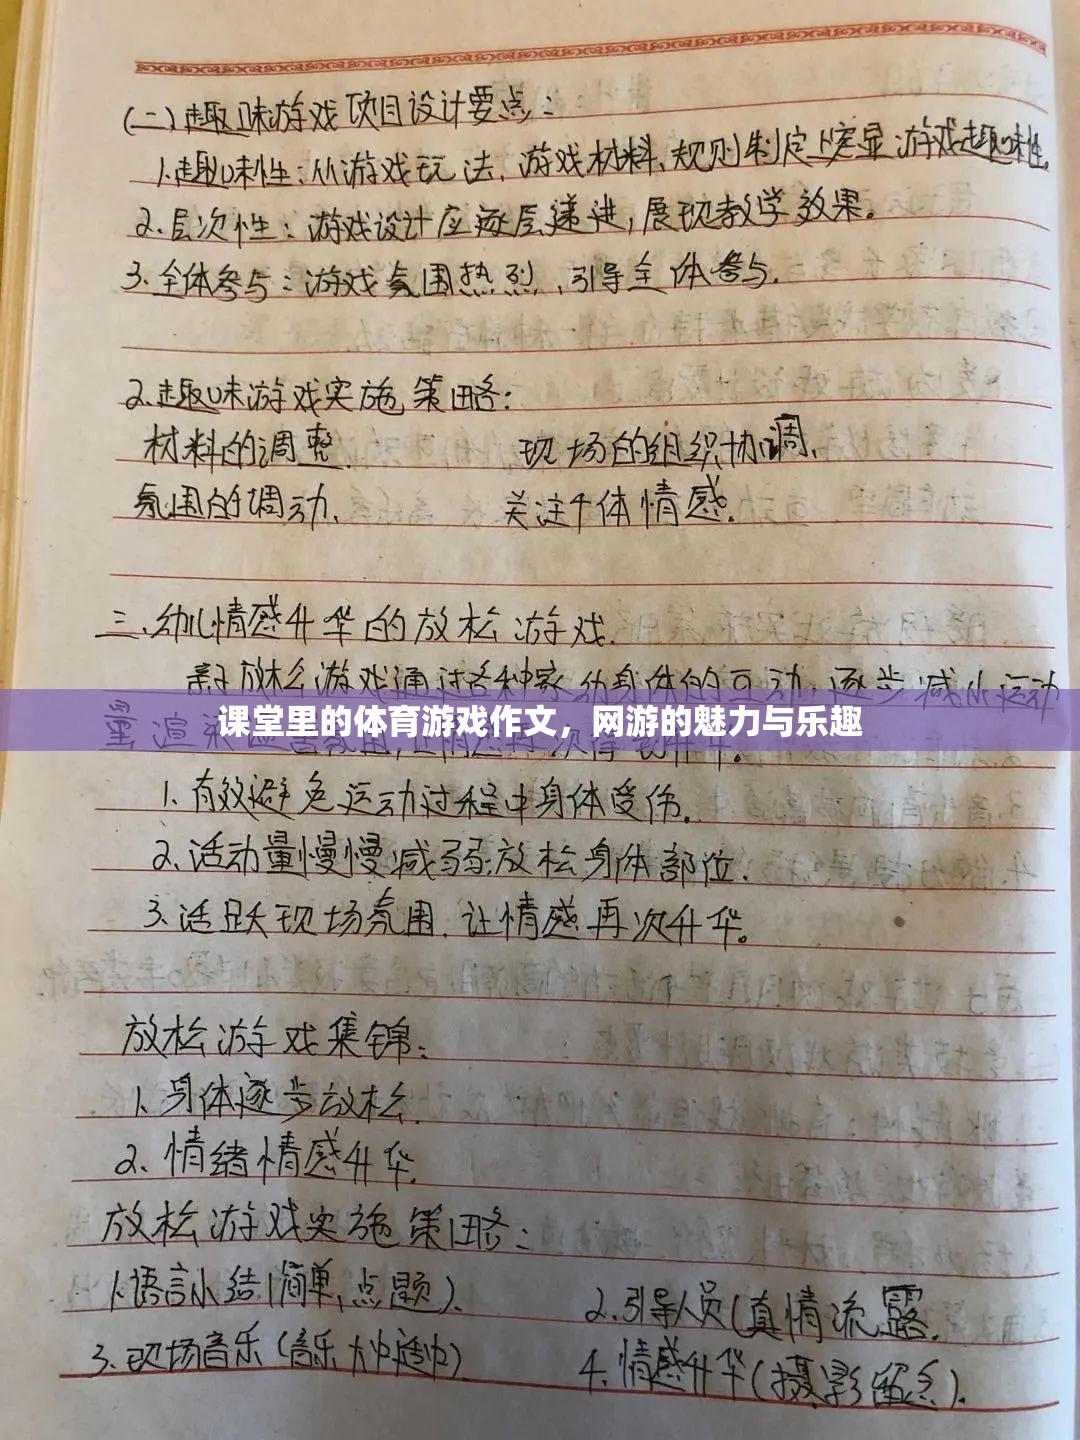 (二)趣味游戏项目设计要点:
1.趣味性:从游戏玩法、游戏材料、规则制定上突显游戏趣味性。
2.层次性:游戏设计应逐层递进,展现教学效果。
3.全体参与:游戏氛围热烈、引导全体参与。
2.趣味游戏实施策略:
材料的调整、 现场的组织协调、
氛围的调动、 关注个体情感。
三、幼儿情感升华的放松游戏、
亲子放松游戏通过各种家幼身体的互动,逐步减小运动
量渲染
课堂里的体育游戏作文，网游的魅力与乐趣
1、有效避免运动过程中身体受伤。
2、活动量慢慢减弱放松身体部位、
3、活跃现场氛围、让情感再次升华。
放松游戏集锦:
1、身体逐步放松、
2、情绪情感升华、
放松游戏实施策略:
1、语言小结(简单、点题)、 2、引导人员(真情流露、
3、现场音乐(音乐 4、情感升华(摄影留念)、